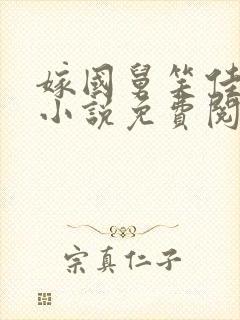 嫁國舅笨佳
小說免費閱
宗真仁子